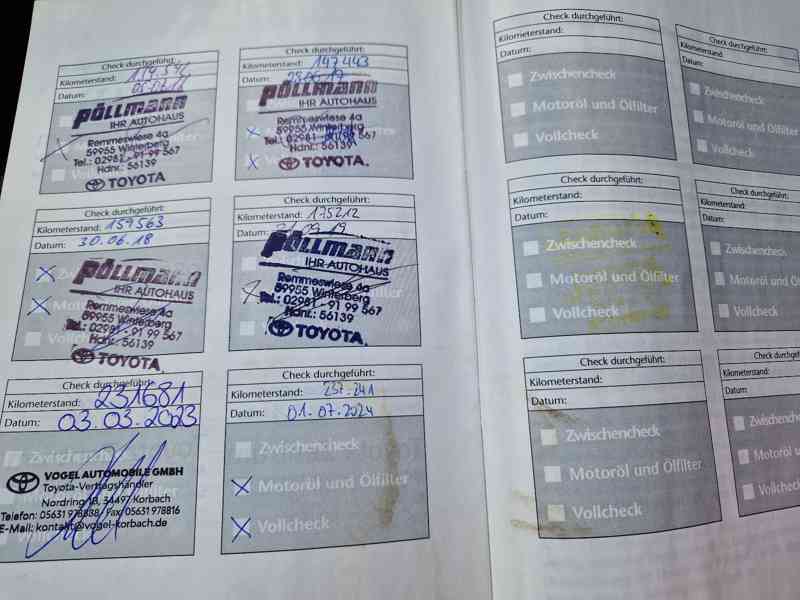 Check durchgeführt:
Kilometerstand:
Datum:
PÖLLMANN
IHR AUTOHAUS
Remmeswiese 4a
59955 Winterberg
Tel.: 02981 - 91 99 567
Hdnr.: 56139
TOYOTA
Check durchgeführt:
Kilometerstand: 147443
Datum:
PÖLLMANN
IHR AUTOHAUS
Remmeswiese 4a
59955 Winterberg
Hdnr.: 56139
TOYOTA
Check durchgeführt:
Kilometerstand: 159563
Datum: 30.06.18
PÖLLMANN
IHR AUTOHAUS
Remmeswiese 4a
59955 Winterberg
Tel.: 02981 - 91 99 567
Hdnr.: 56139
TOYOTA
Check durchgeführt:
Kilometerstand: 175212
PÖLLMANN
IHR AUTOHAUS
Remmeswiese 4a
59955 Winterberg
Tel.: 02981 - 91 99 567
Hdnr.: 56139
TOYOTA
Check durchgeführt:
Kilometerstand: 231681
Datum: 03.03.2023
Zwischencheck
VOGEL AUTOMOBILE GMBH
Toyota-Vertragshändler
Nordring 18, 34497 Korbach
Telefon: 05631 978838 Fax: 05631 978816
E-Mail: kontakt@vogel-korbach.de
Check durchgeführt:
Kilometerstand: 237.241
Datum: 01.07.2024
Zwischencheck
Motoröl und Ölfilter
Vollcheck
Check durchgeführt:
Kilometerstand:
Datum:
Zwischencheck
Motoröl und Ölfilter
Vollcheck
Check durchgeführt:
Kilometerstand:
Datum:
Zwischencheck
Motoröl und Ölfilter
Vollcheck
Check durchgeführt:
Kilometerstand:
Datum:
Zwischencheck
Motoröl und Ölfilter
Vollcheck
Check durchgeführt:
Kilometerstand:
Datum:
Zwischencheck
Motoröl und Ölfilter
Vollcheck
Check durchgeführt:
Kilometerstand:
Datum:
Zwischencheck
Motoröl und Ölfilter
Vollcheck
Check durchgeführt:
Kilometerstand:
Datum:
Zwischencheck
Motoröl und Ölfilter
Vollcheck